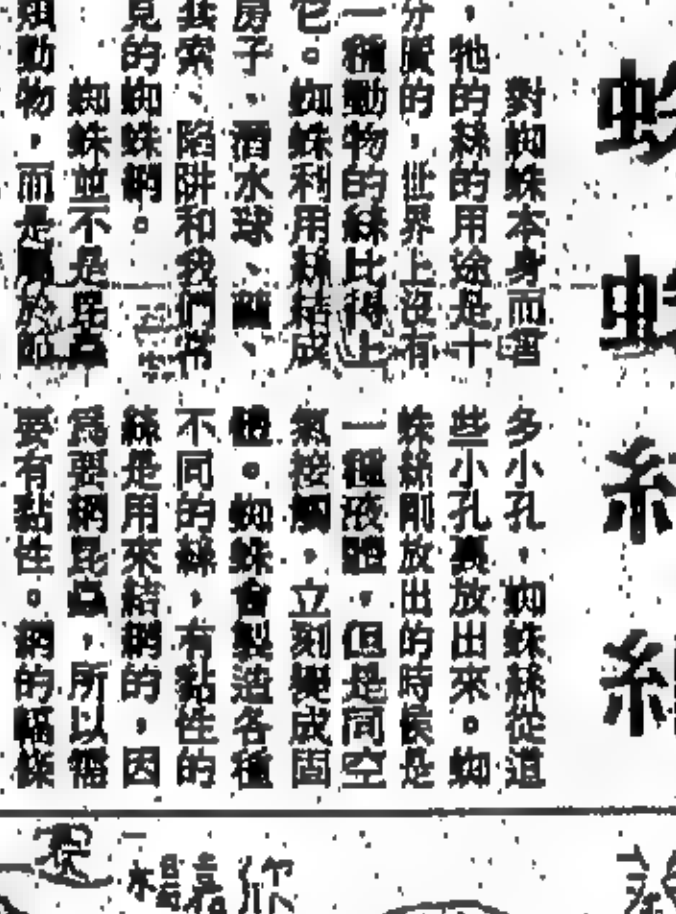 對蜘蛛本身而言
,牠的絲的用途是十
分廣的,世界上沒有
一種動物的絲比得上
它。蜘蛛利用絲結成
房子、潛水球、繭、
陷阱和我們
見的蜘蛛網。
蜘蛛並不是昆蟲
類動物,而是屬於節
多小孔,蜘蛛絲從這
些小孔裏放出來。蜘
蛛絲剛放出的時候是
一種液體,但是同空
氣接觸,立刻變成固
體。蜘蛛會製造各種
不同的絲,有黏性的
絲是用來結網的,因
為要網昆蟲,所以需
要有黏性。網的